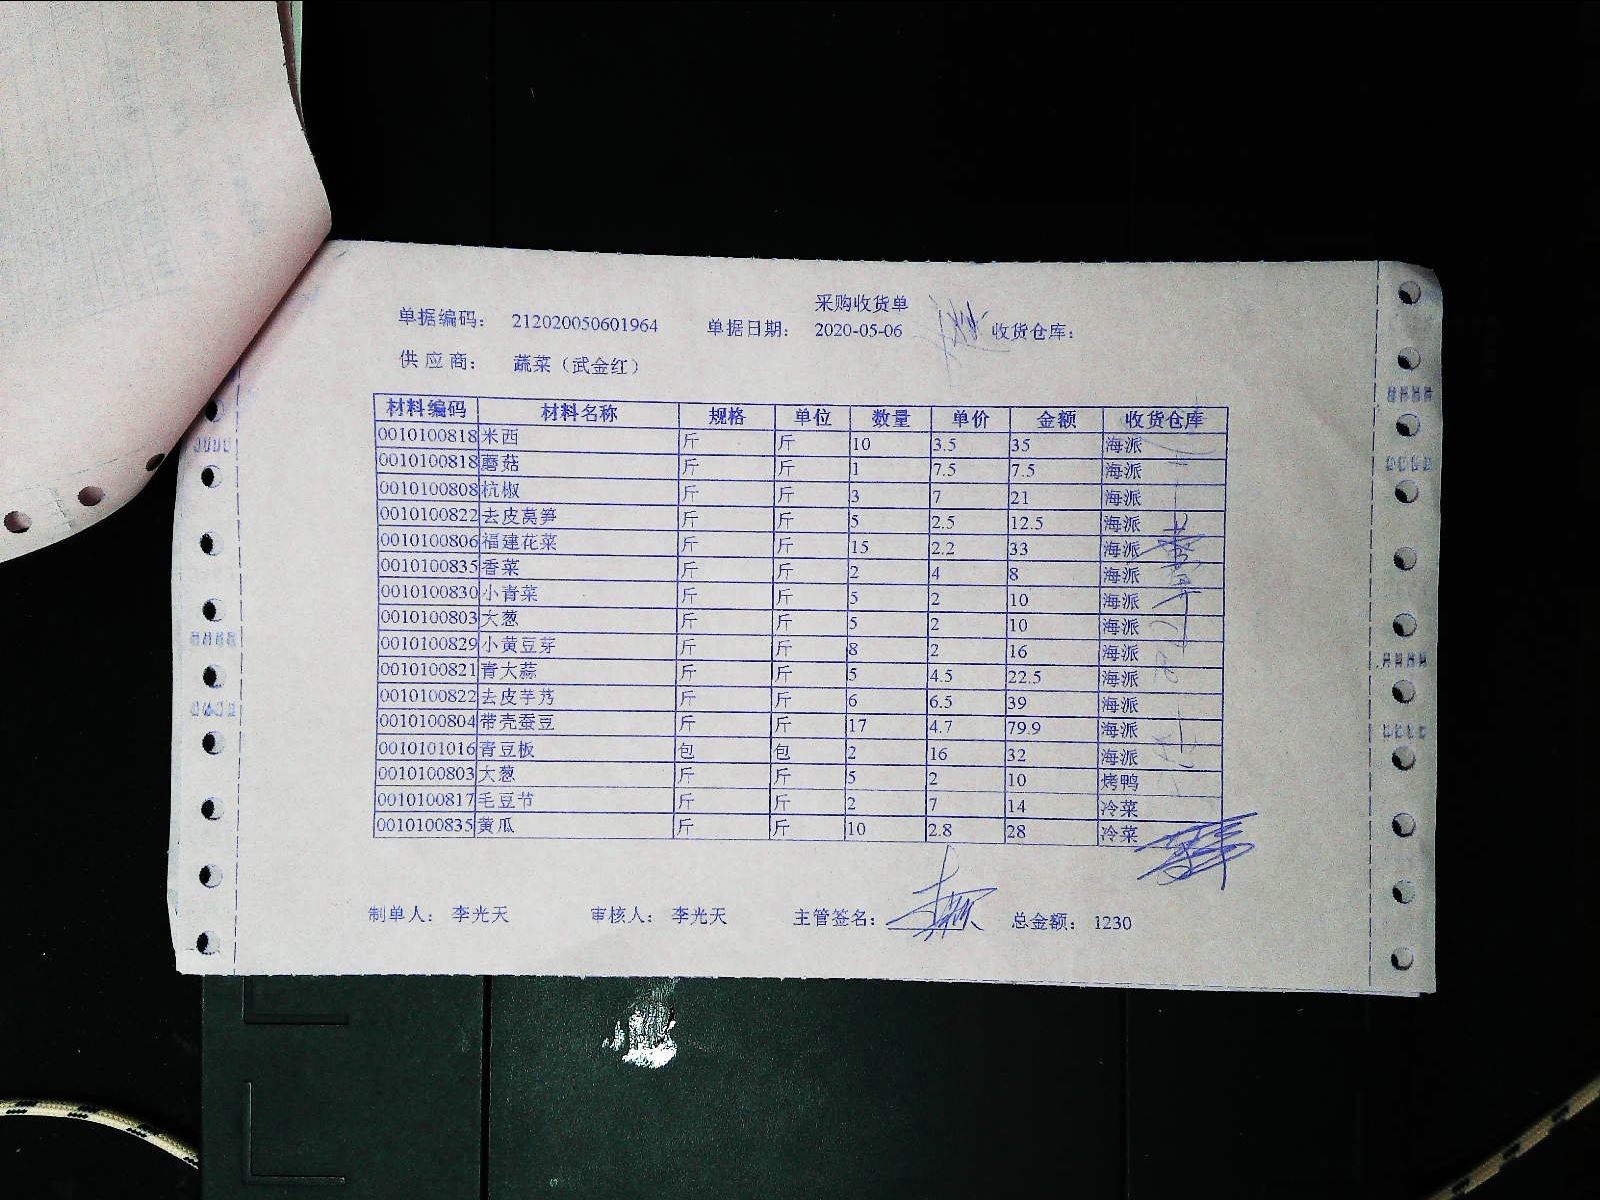 采购收货单
单据编码： 212020050601964 单据日期： 2020-05-06 收货仓库：
供应商： 蔬菜（武金红）
材料编码 材料名称 规格 单位 数量 单价 金额 收货仓库
0010100818 米西 斤 斤 10 3.5 35 海派
0010100818 蘑菇 斤 斤 1 7.5 7.5 海派
0010100808 杭椒 斤 斤 3 7 21 海派
0010100822 去皮莴笋 斤 斤 5 2.5 12.5 海派
0010100806 福建花菜 斤 斤 15 2.2 33 海派
0010100835 香菜 斤 斤 2 4 8 海派
0010100830 小青菜 斤 斤 5 2 10 海派
0010100803 大葱 斤 斤 5 2 10 海派
0010100829 小黄豆芽 斤 斤 8 2 16 海派
0010100821 青大蒜 斤 斤 5 4.5 22.5 海派
0010100822 去皮芋艿 斤 斤 6 6.5 39 海派
0010100804 带壳蚕豆 斤 斤 17 4.7 79.9 海派
0010101016 青豆板 包 包 2 16 32 海派
0010100803 大葱 斤 斤 5 2 10 烤鸭
0010100817 毛豆节 斤 斤 2 7 14 冷菜
0010100835 黄瓜 斤 斤 10 2.8 28 冷菜
制单人： 李光天 审核人： 李光天 主管签名： 总金额： 1230